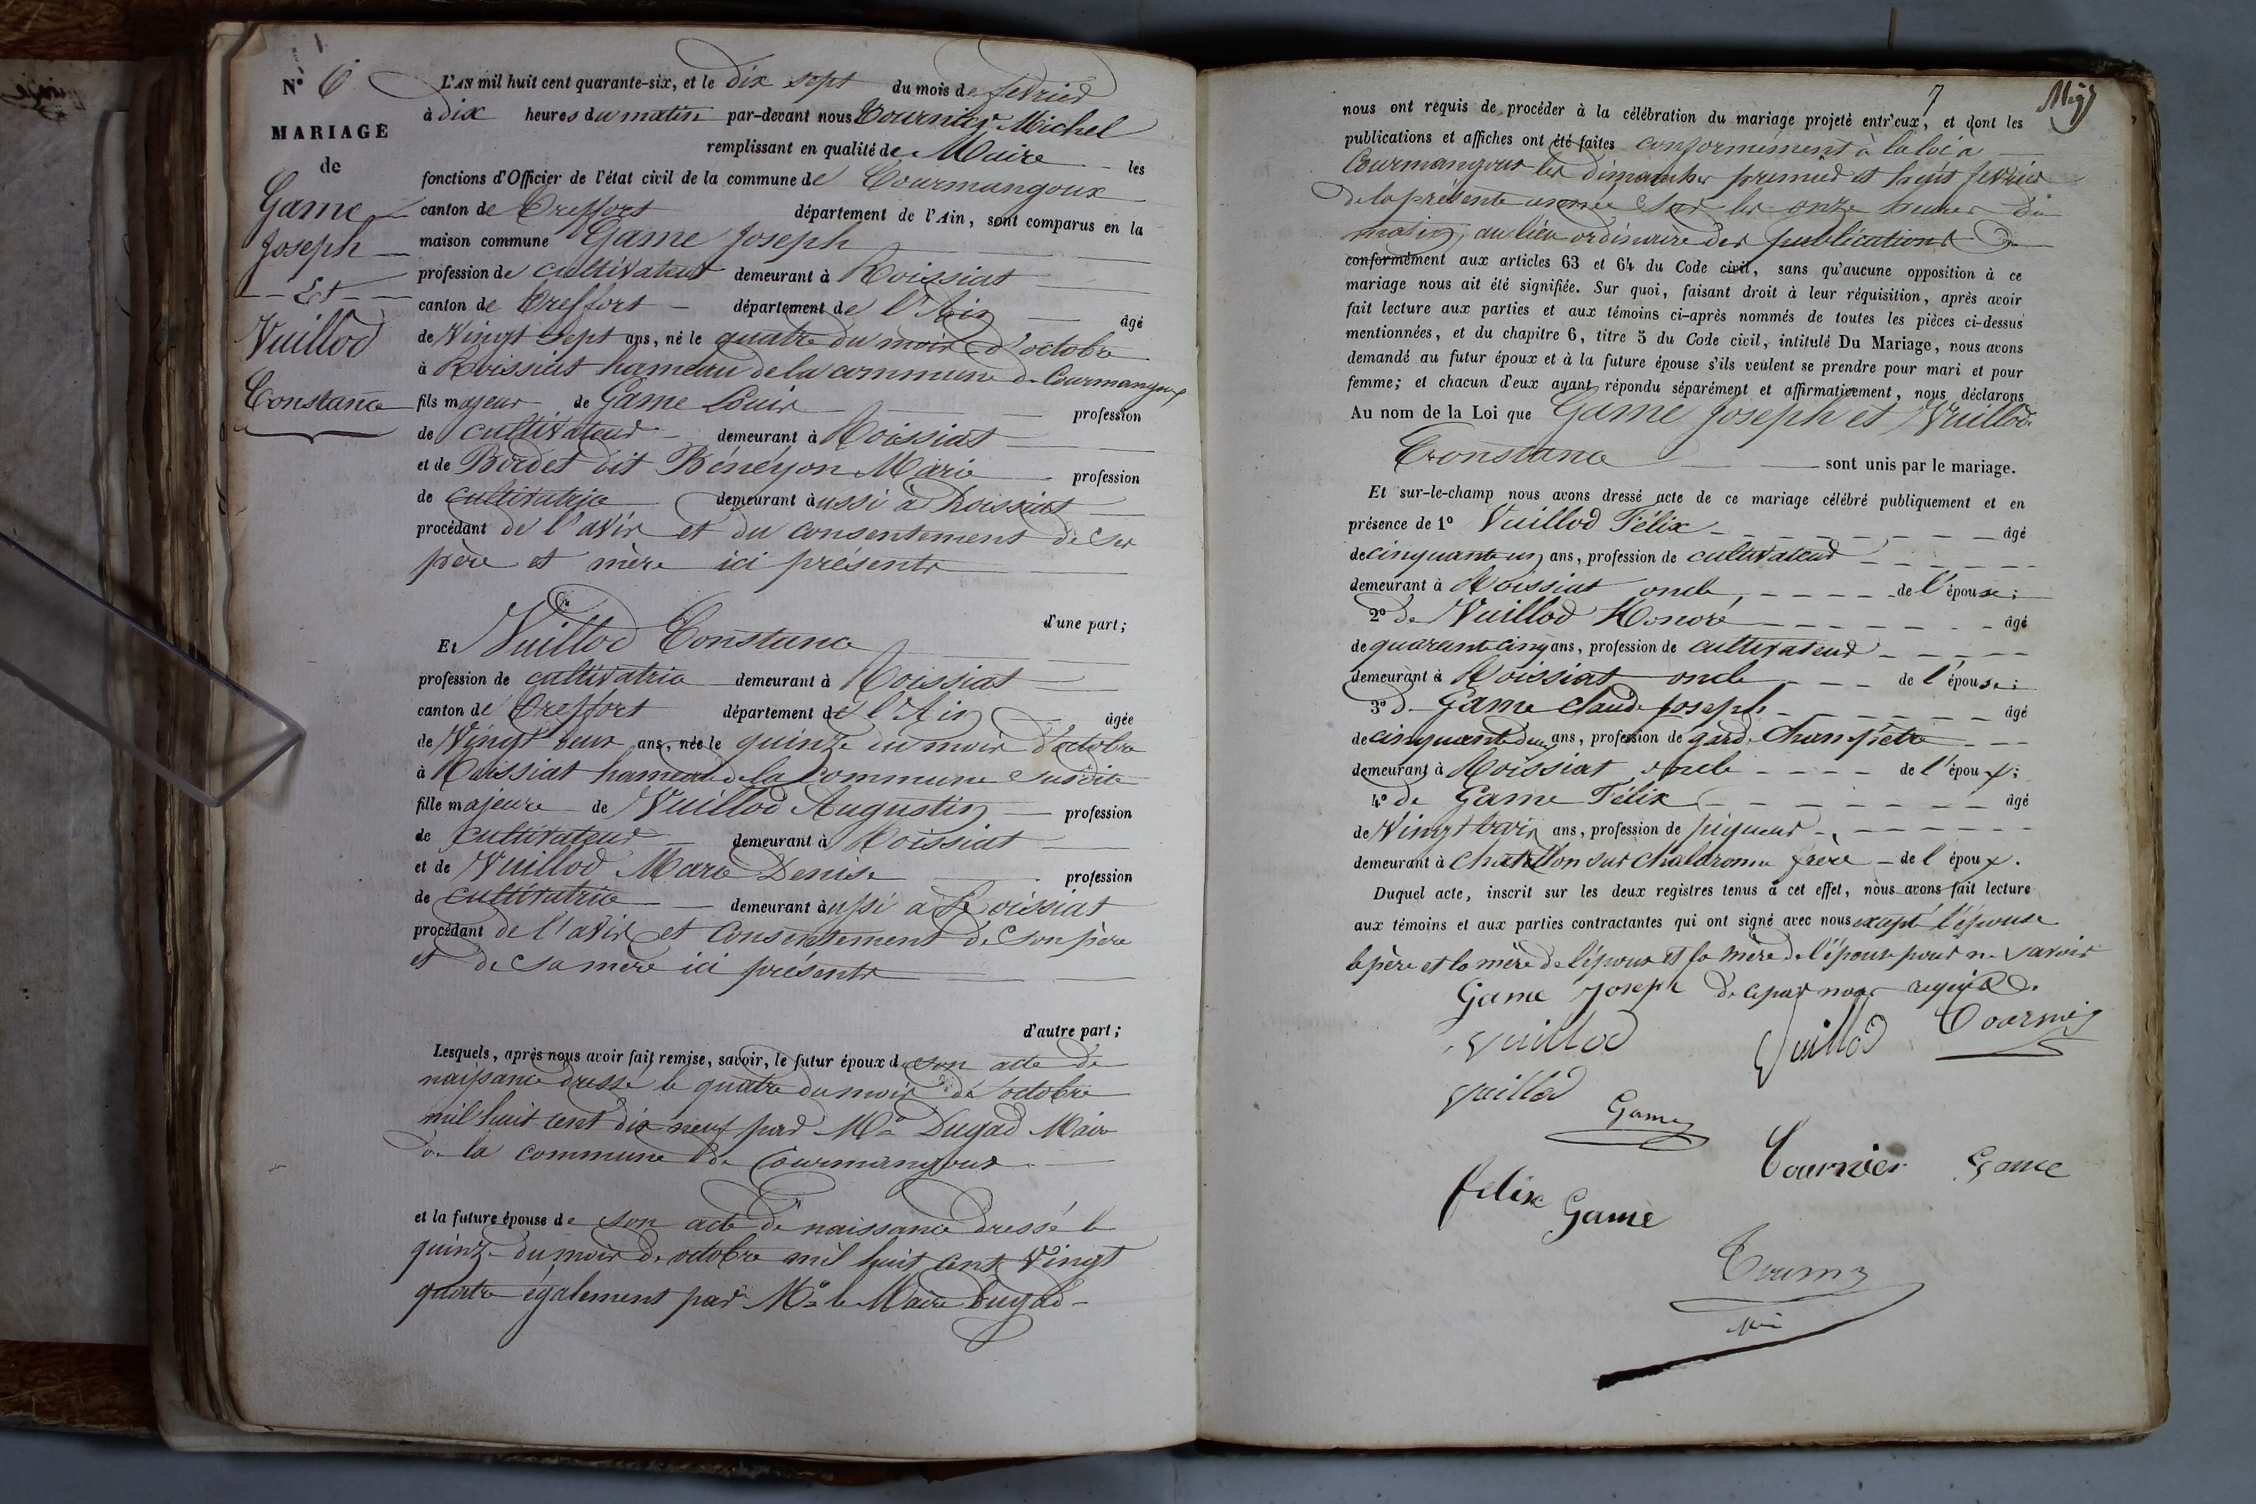 N° 6
MARIAGE
de
Game
Joseph
Et
Vuillod
Constance
L'AN mil huit cent quarante-six, et le dix sept du mois de fevrier
à dix heures du matin par-devant nous Tournier Michel
remplissant en qualité de Maire les
fonctions d'Officier de l'état civil de la commune de Courmangoux
canton de Treffort département de l'Ain, sont comparus en la
maison commune Game Joseph
profession de cultivateur demeurant à Roissiat
canton de Treffort département de l'Ain âgé
de Vingt sept ans, né le quatre du mois d'octobre
à Roissiat hameau de la commune de Courmangoux
fils majeur de Game Louis profession
de cultivateur demeurant à Roissiat
et de Bordet dit Bénéyon Marie profession
de cultivatrice demeurant aussi à Roissiat
procédant de l'avis et du consentement de ses
père et mère ici présents
d'une part;
Et Vuillod Constance
profession de cultivatrice demeurant à Roissiat
canton de Treffort département de l'Ain âgée
de Vingt deux ans, née le quinze du mois d'octobre
à Roissiat hameau de la commune susdite
fille majeure de Vuillod Augustin profession
de cultivateur demeurant à Roissiat
et de Vuillod Marie Denise profession
de cultivatrice demeurant aussi a Roissiat
procédant de l'avis et consentement de son père
et de sa mère ici présents
d'autre part;
Lesquels, après nous avoir fait remise, savoir, le futur époux de son acte de
naissance dressé le quatre du mois de octobre
mil huit cent dix neuf par Mr Dugad Maire
de la commune de Courmangoux
et la future épouse de son acte de naissance dressé le
quinze du mois de octobre mil huit cent Vingt
quatre également par Mr le Maire Dugad
7
nous ont requis de procéder à la célébration du mariage projeté entr'eux, et dont les
publications et affiches ont été faites conformément à la loi à
Courmangoux les dimanches premier et huit fevrier
de la présente année sur les onze heures du
matin, au lieu ordinaire des publications
conformément aux articles 63 et 64 du Code civil, sans qu'aucune opposition à ce
mariage nous ait été signifiée. Sur quoi, faisant droit à leur réquisition, après avoir
fait lecture aux parties et aux témoins ci-après nommés de toutes les pièces ci-dessus
mentionnées, et du chapitre 6, titre 5 du Code civil, intitulé Du Mariage, nous avons
demandé au futur époux et à la future épouse s'ils veulent se prendre pour mari et pour
femme; et chacun d'eux ayant répondu séparément et affirmativement, nous déclarons
Au nom de la Loi que Game Joseph et Vuillod
Constance sont unis par le mariage.
Et sur-le-champ nous avons dressé acte de ce mariage célébré publiquement et en
présence de 1° Vuillod Félix âgé
de cinquante un ans, profession de cultivateur
demeurant à Roissiat oncle de l'épouse;
2° de Vuillod Honoré âgé
de quarante cinq ans, profession de cultivateur
demeurant à Roissiat oncle de l'épouse;
3° de Game Claude Joseph âgé
de cinquante deux ans, profession de garde Champêtre
demeurant à Roissiat oncle de l'époux;
4° de Game Félix âgé
de Vingt trois ans, profession de piqueur
demeurant à Chatillon sur Chalaronne frère de l'époux.
Duquel acte, inscrit sur les deux registres tenus à cet effet, nous avons fait lecture
aux témoins et aux parties contractantes qui ont signé avec nous excepté l'épouse
le père et la mère de l'époux et la mère de l'épouse pour ne savoir
de ce par nous requis.
Game Joseph
Vuillod
Vuillod
Tournier
Vuillod
Game
Tournier
Game
felix Game